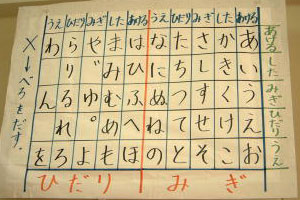 あける した みぎ ひだり うえ
あける した みぎ ひだり うえ あける した みぎ ひだり うえ
あいうえお
かきくけこ
さしすせそ
たちつてと
なにぬねの
はひふへほ
まみむめも
や゛ゆ。よ
らりるれろ
わんを
×→べろをだす。
みぎ
ひだり